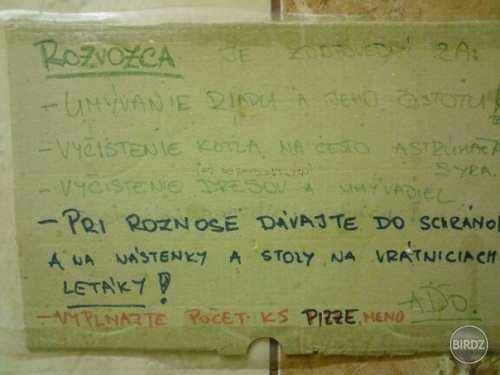 ROZVOZCA JE ZODPOVEDNÝ ZA:
- UMÝVANIE RIADU A JEHO ČISTOTU!
- VYČISTENIE KOTLA NA CESTO A STRÚHAČA
SYRA.
- VYČISTENIE DREZOV A UMÝVADIEL
- PRI ROZNOSE DÁVAJTE DO SCHRÁNOK
A NA NÁSTENKY A STOLY NA VRÁTNICIACH
LETÁKY!
- VYPLŇAJTE POČET KS PIZZE, MENO
AĎO.
BIRDZ